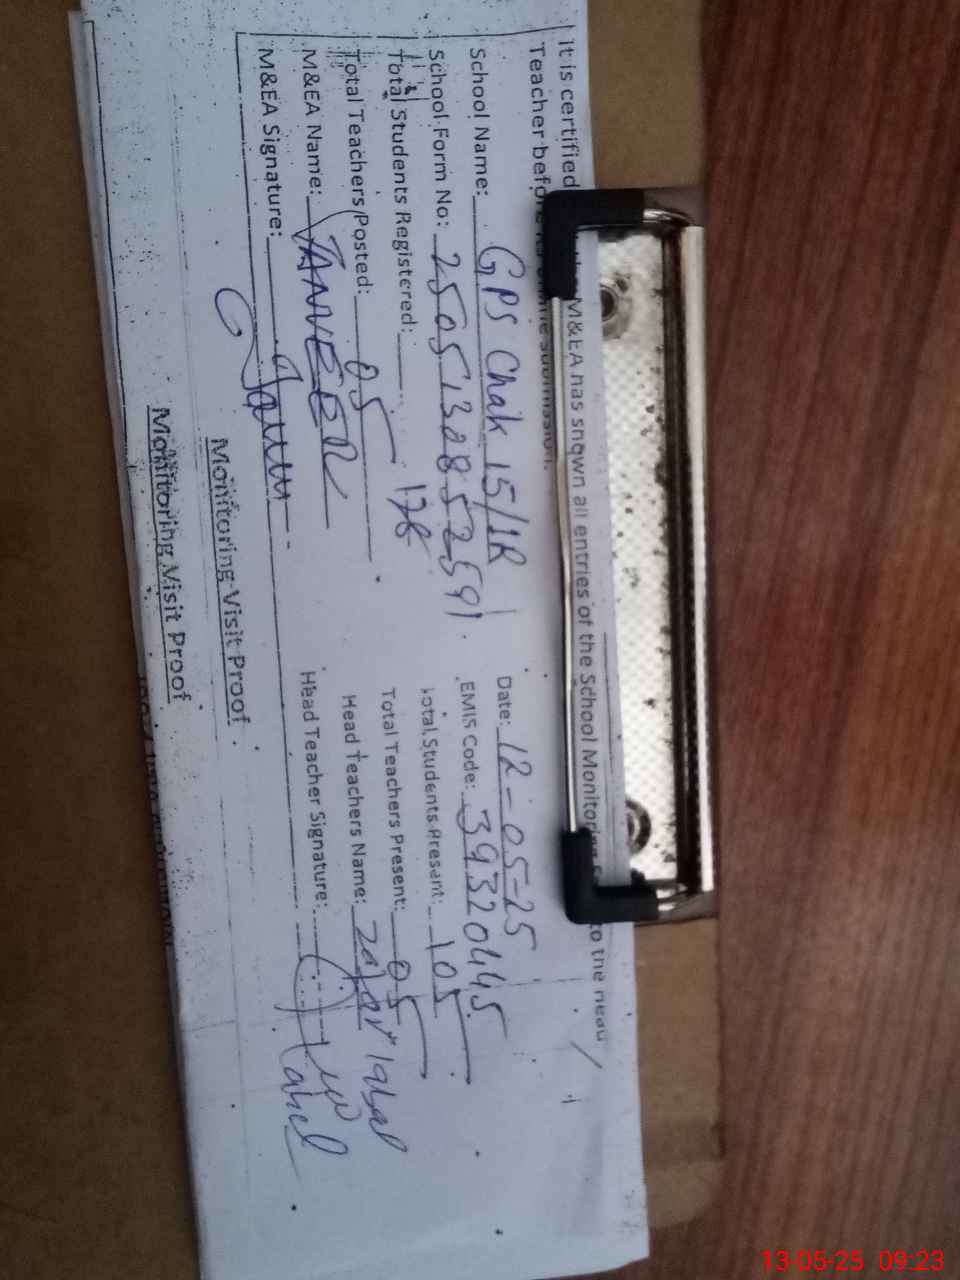 It is certified M&EA has shown all entries of the School Monitoring to the head
Teacher before its online submission.
School Name: GPS Chak 15/1R Date: 12-05-25
School Form No: 25051308525591 EMIS Code: 39320445
Total Students Registered: 178 Total Students Present: 105
Total Teachers Posted: 05 Total Teachers Present: 05
M&EA Name: TANVEER Head Teachers Name: Zafar Iqbal
M&EA Signature: Head Teacher Signature:
Monitoring Visit Proof
Monitoring Visit Proof
13-05-25 09:23